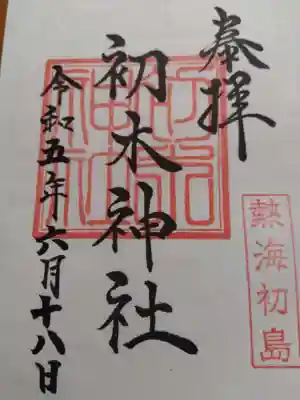 奉拝
熱海初島
初木神社
令和五年六月十八日